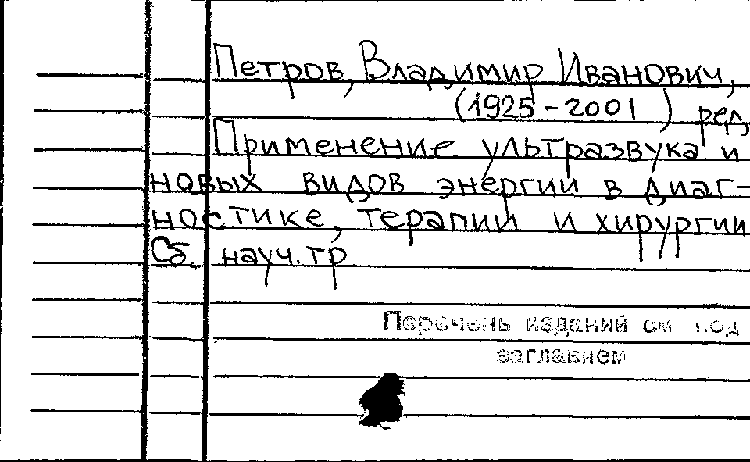 Петров, Владимир Иванович,
(1925-2001) ред.
Применение ультразвука и
новых видов энергии в диаг-
ностике, терапии и хирургии
Сб. науч. тр
Перечень изданий см. под
заглавием